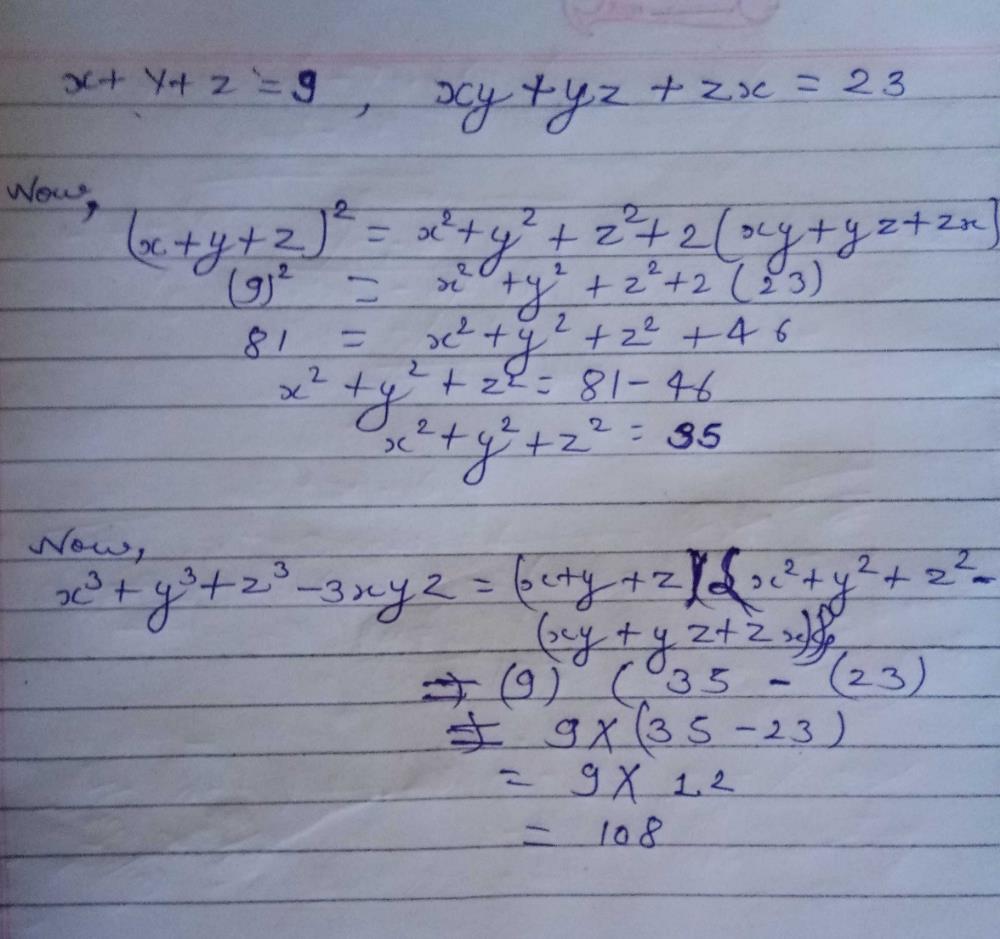 x + y + z = 9 , xy + yz + zx = 23
Now,
(x + y + z)² = x² + y² + z² + 2(xy + yz + zx)
(9)² = x² + y² + z² + 2 (23)
81 = x² + y² + z² + 46
x² + y² + z² = 81 - 46
x² + y² + z² = 35
Now,
x³ + y³ + z³ - 3xyz = (x + y + z) { x² + y² + z² -
(xy + yz + zx)}
⇒ (9) ( 35 - (23)
⇒ 9 X (35 - 23)
= 9 X 12
= 108